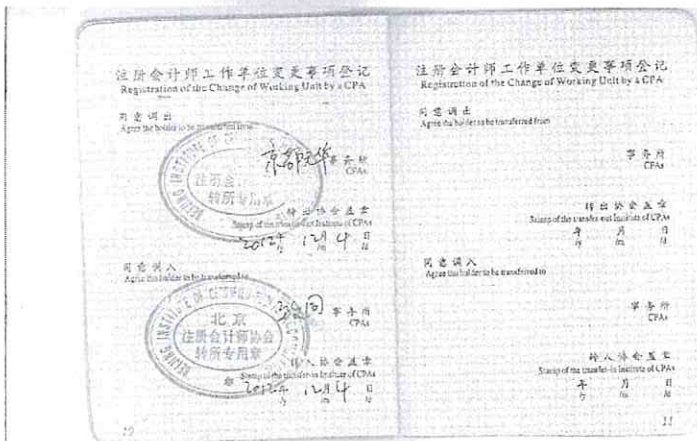 注册会计师工作单位变更事项登记
Registration of the Change of Working Unit by a CPA
同意调出
Agree the holder to be transferred from
事务所
CPAs
注册会
转所专用章
转出协会盖章
Stamp of the transfer-out Institute of CPAs
2012年 12月 4日
同意调入
Agree the holder to be transferred to
同 事务所
CPAs
北京
注册会计师协会
转所专用章
转入协会盖章
Stamp of the transfer-in Institute of CPAs
2012年 12月 4日
10
注册会计师工作单位变更事项登记
Registration of the Change of Working Unit by a CPA
同意调出
Agree the holder to be transferred from
事务所
CPAs
转出协会盖章
Stamp of the transfer-out Institute of CPAs
年 月 日
/y /m /d
同意调入
Agree the holder to be transferred to
事务所
CPAs
转入协会盖章
Stamp of the transfer-in Institute of CPAs
年 月 日
/y /m /d
11